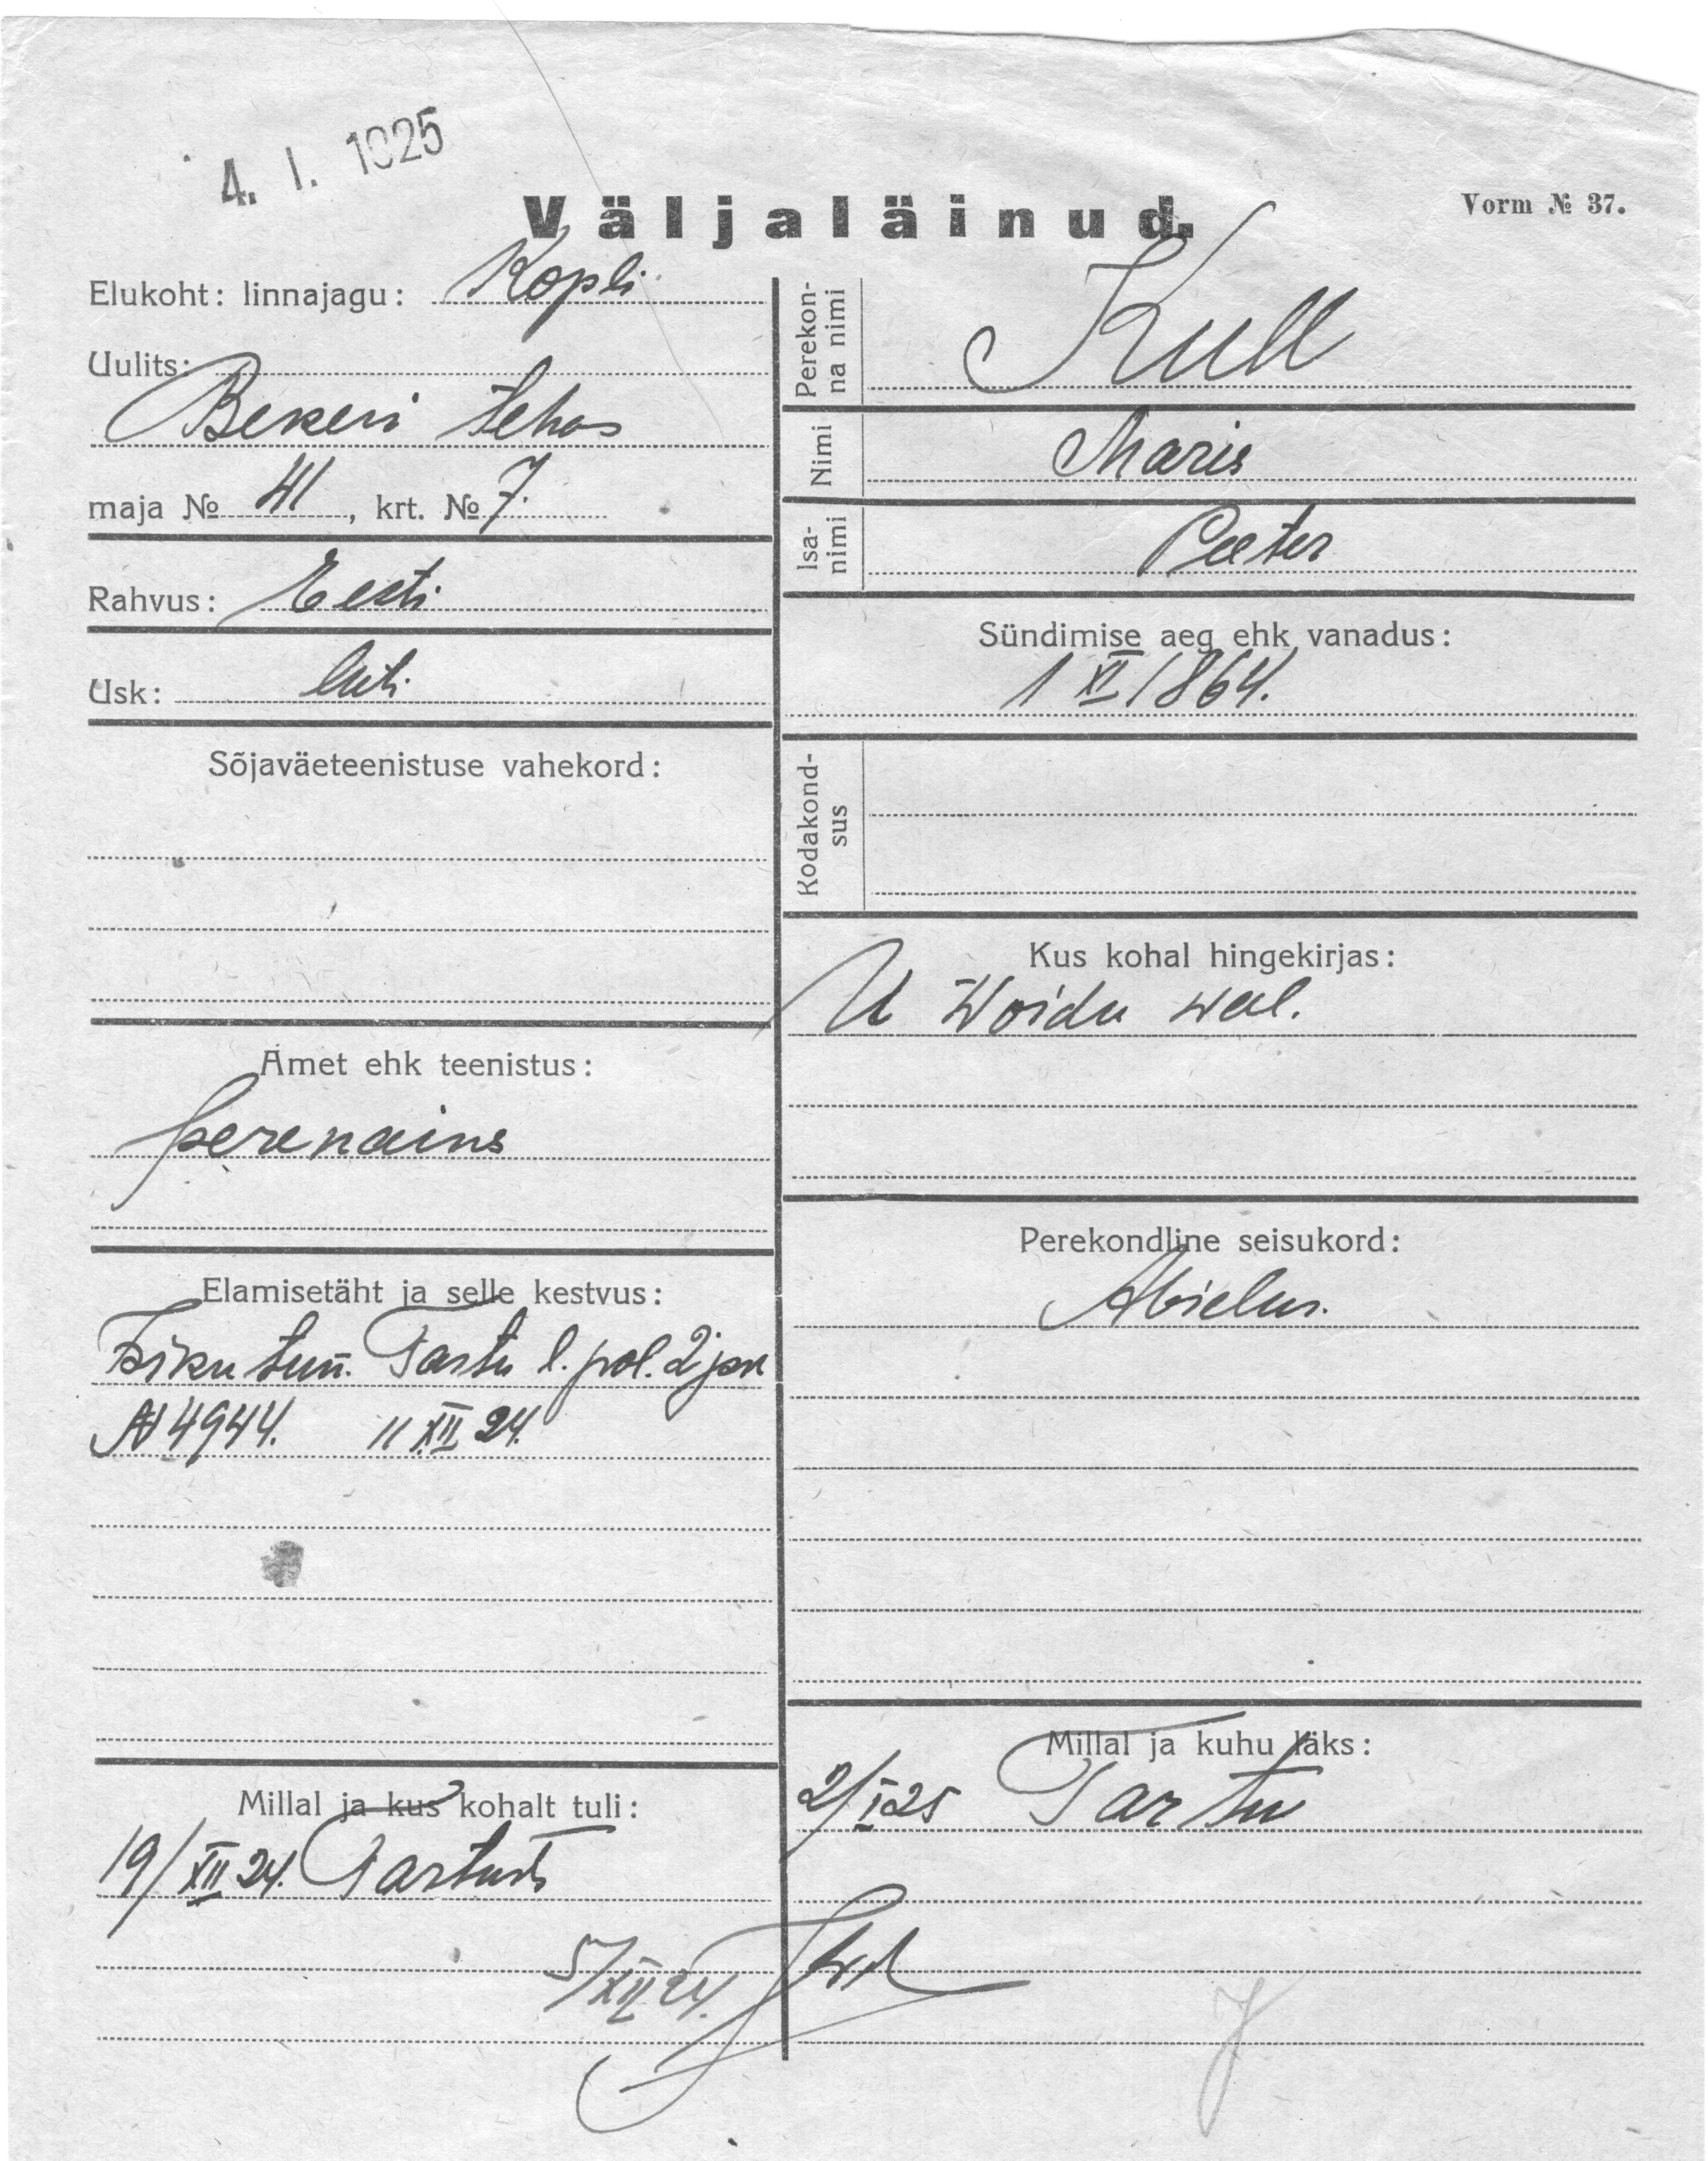 4. I. 1925
Väljaläinud.
Vorm № 37.
Elukoht: linnajagu: Kopli
Uulits:
Bekeri tehas
maja № 41, krt. № 7.
Rahvus: Eesti
Usk: luti
Sõjaväeteenistuse vahekord:
Amet ehk teenistus:
perenaine
Elamisetäht ja selle kestvus:
Isiku tun. Tartu l. pol. 2 jsk
№ 4944. 11.XII 24.
Millal ja kus kohalt tuli:
19/XII 24. Tartust
Perekonna nimi
Kull
Nimi
Marie
Isanimi
Peeter
Sündimise aeg ehk vanadus:
1 XI 1864.
Kodakondsus
Kus kohal hingekirjas:
U Woidu wal.
Perekondline seisukord:
Abielus.
Millal ja kuhu läks:
2/I 25 Tartu
5/XII 24.